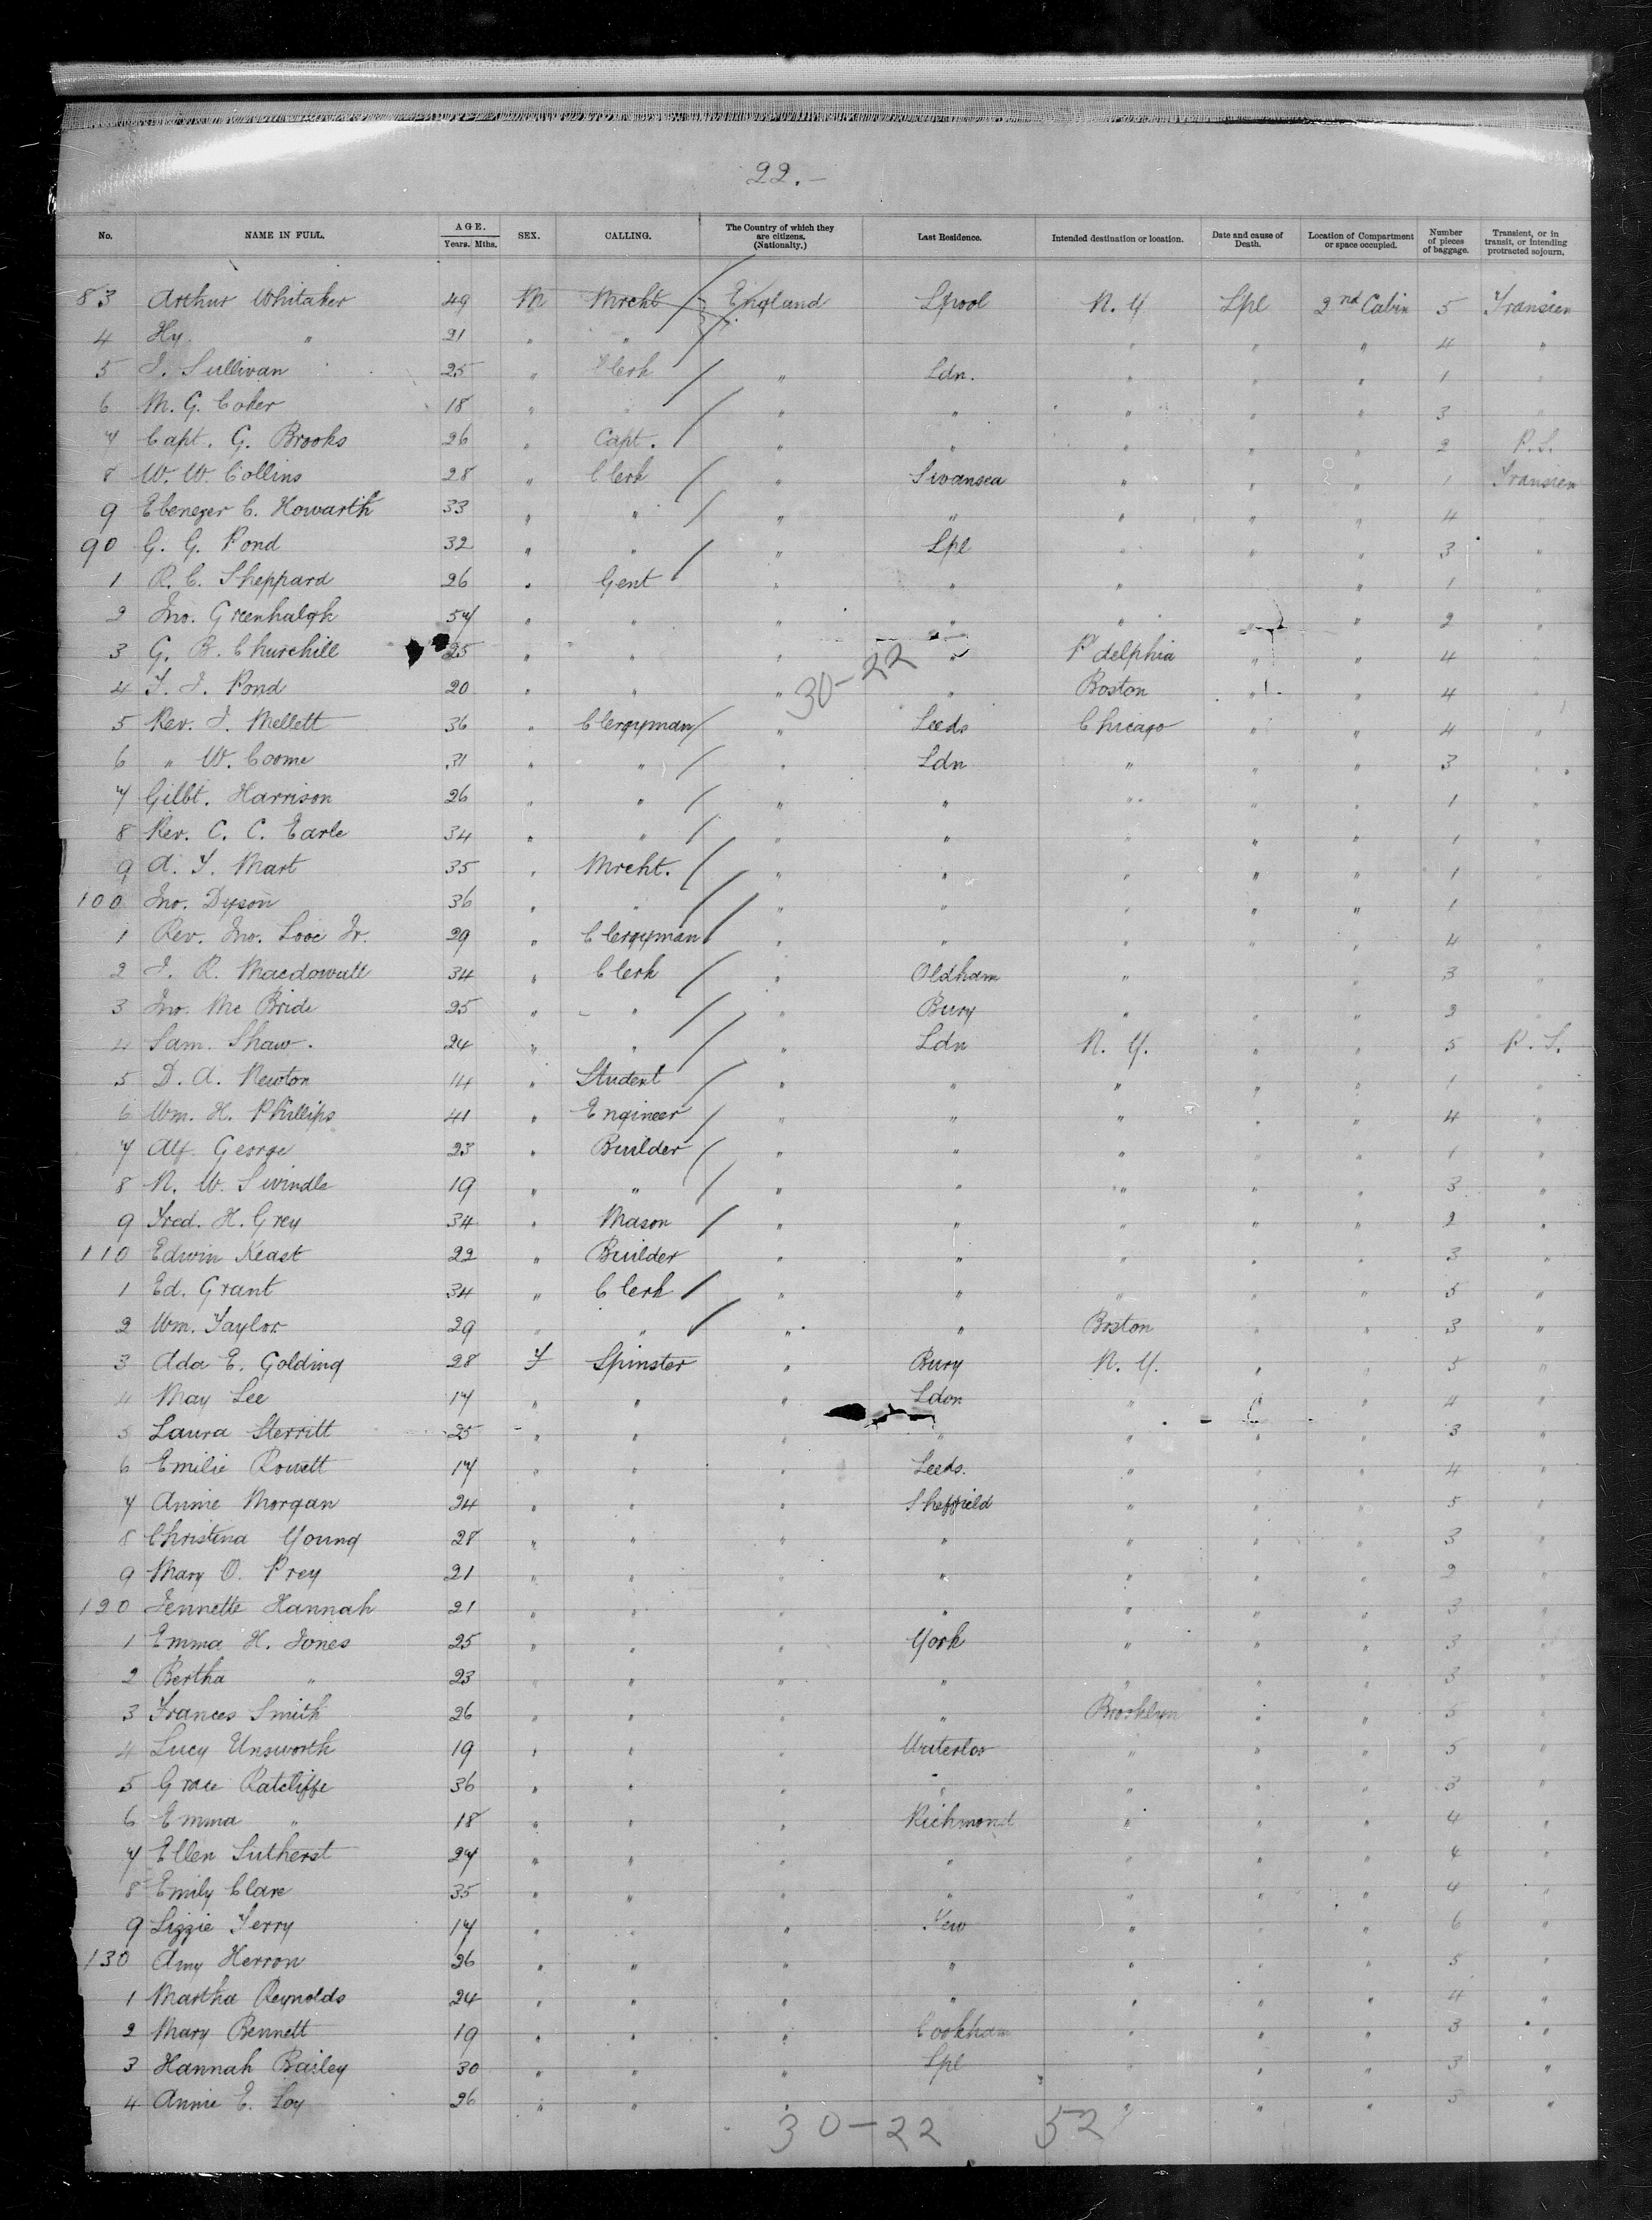 22.-
No. NAME IN FULL. AGE. Years. Mths. SEX. CALLING. The Country of which they are citizens. (Nationalty.) Last Residence. Intended destination or location. Date and cause of Death. Location of Compartment or space occupied. Number of pieces of baggage. Transient, or in transit, or intending protracted sojourn.
83 Arthur Whitaker 49 M Mrcht England Lpool N. Y Lpl 2nd Cabin 5 Transien
4 Hy " 21 " " " " " 4 "
5 J. Sullivan 25 " Clerk " Ldn. " " " 1 "
6 M. G. Coker 18 " " " " " " " 3 "
7 Capt. G. Brooks 26 " Capt. " " " " " 2 P.S.
8 W. W. Collins 28 " Clerk " Swansea " " " 1 Transien
9 Ebenezer C. Howarth 33 " " " " " " " 4 "
90 G. G. Pond 32 " " " Lpl " " " 3 "
1 R. C. Sheppard 26 " Gent " " " " 1 "
2 Jno. Greenhalgh 57 " " " " " " " 2 "
3 G. B. Churchill 25 " " " " P'delphia " " 4 "
4 T. J. Pond 20 " " " " Boston " " 4
30-22
5 Rev. J. Mellett 36 " Clergyman " Leeds Chicago " " 4 "
6 " W. Coome 31 " " " Ldn " " " 3 "
7 Gilbt. Harrison 26 " " " " " " " 1 "
8 Rev. C. C. Earle 34 " " " " " " " 1 "
9 A. T. Mart 35 " Mrcht. " " " " " 1 "
100 Jno. Dyson 36 " " " " " " " 1
1 Rev. Jno. Looe Jr. 29 " Clergyman " " " " " 4 "
2 J. R. Macdowall 34 " Clerk " Oldham " " 3 "
3 Jno. Mc Bride 25 " " " Bury " " " 2 "
4 Sam. Shaw. 24 " " " Ldn N. Y. " " 5 P. S.
5 D. A. Newton 14 " Student " " " " " 1 "
6 Wm. H. Phillips 41 " Engineer " " " " " 4 "
7 Alf. George 23 " Builder " " " " " 1 "
8 N. W. Swindle 19 " " " " " " " 3 "
9 Fred. H. Grey 34 " Mason " " " " " 2 "
110 Edwin Keast 22 " Builder " " " " " 3 "
1 Ed. Grant 34 " Clerk " " " " " 5 "
2 Wm. Taylor 29 " " " " Boston " " 3 "
3 Ada E. Golding 28 F Spinster " Bury N. Y. " " 5 "
4 May Lee 17 " " " Ldon " " 4 "
5 Laura Sterritt 25 " " " " " " 3 "
6 Emilie Rowett 17 " " " Leeds. " " " 4 "
7 Annie Morgan 24 " " " Sheffield " " " 5 "
8 Christina Young 28 " " " " " " " 3 "
9 Mary O. Prey 21 " " " " " " " 2 "
120 Jennette Hannah 21 " " " " " " " 3 "
1 Emma H. Jones 25 " " " York " " " 3 "
2 Bertha " 23 " " " " " " " 3 "
3 Frances Smith 26 " " " " Brooklyn " " 5 "
4 Lucy Unsworth 19 " " " Waterloo " " " 5 "
5 Grace Ratcliffe 36 " " " " " " " 3 "
6 Emma " 18 " " " Richmond " " " 4 "
7 Ellen Sutherst 27 " " " " " " " 4 "
8 Emily Clare 35 " " " " " " " 4 "
9 Lizzie Terry 17 " " " Kew " " " 6 "
130 Amy Herron 26 " " " " " " " 5 "
1 Martha Reynolds 24 " " " " " " " 4 "
2 Mary Bennett 19 " " " Cookham " " " 3 "
3 Hannah Bailey 30 " " " Lpl " " " 3 "
4 Annie E. Loy 26 " " " " " " 3 "
30-22 52